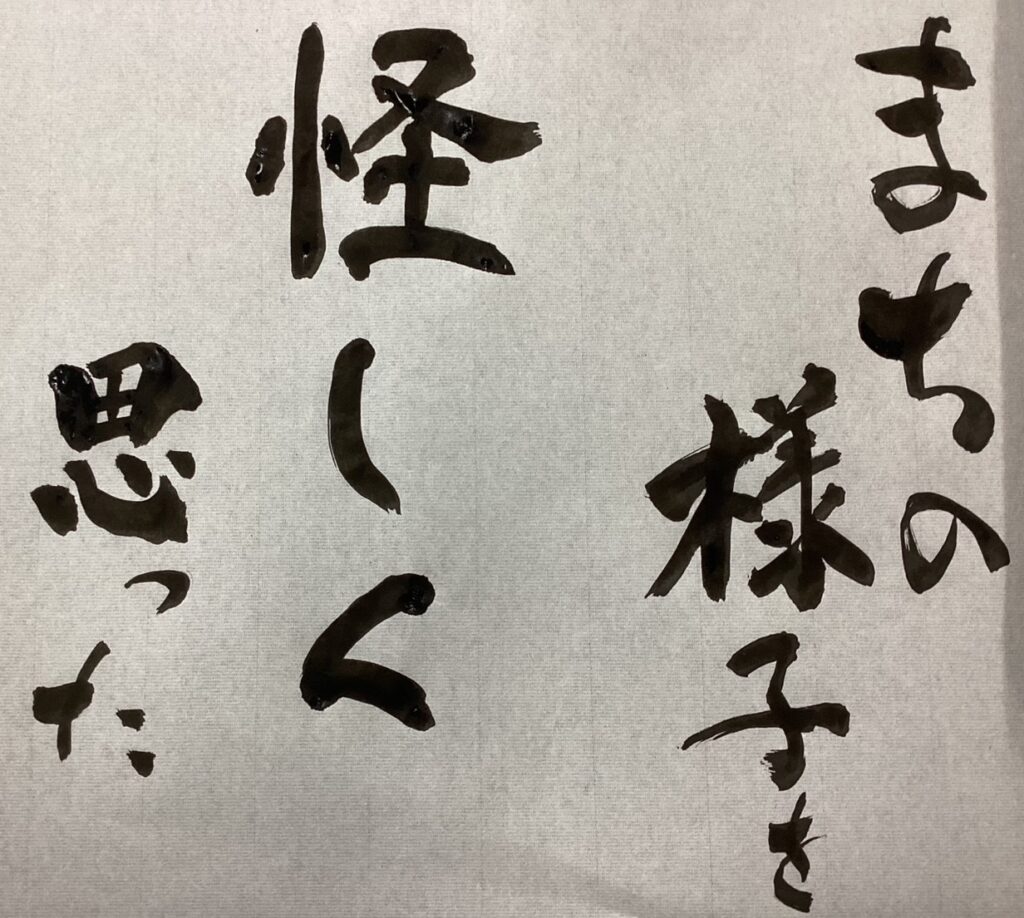 まちの
様子を
怪しく
思った